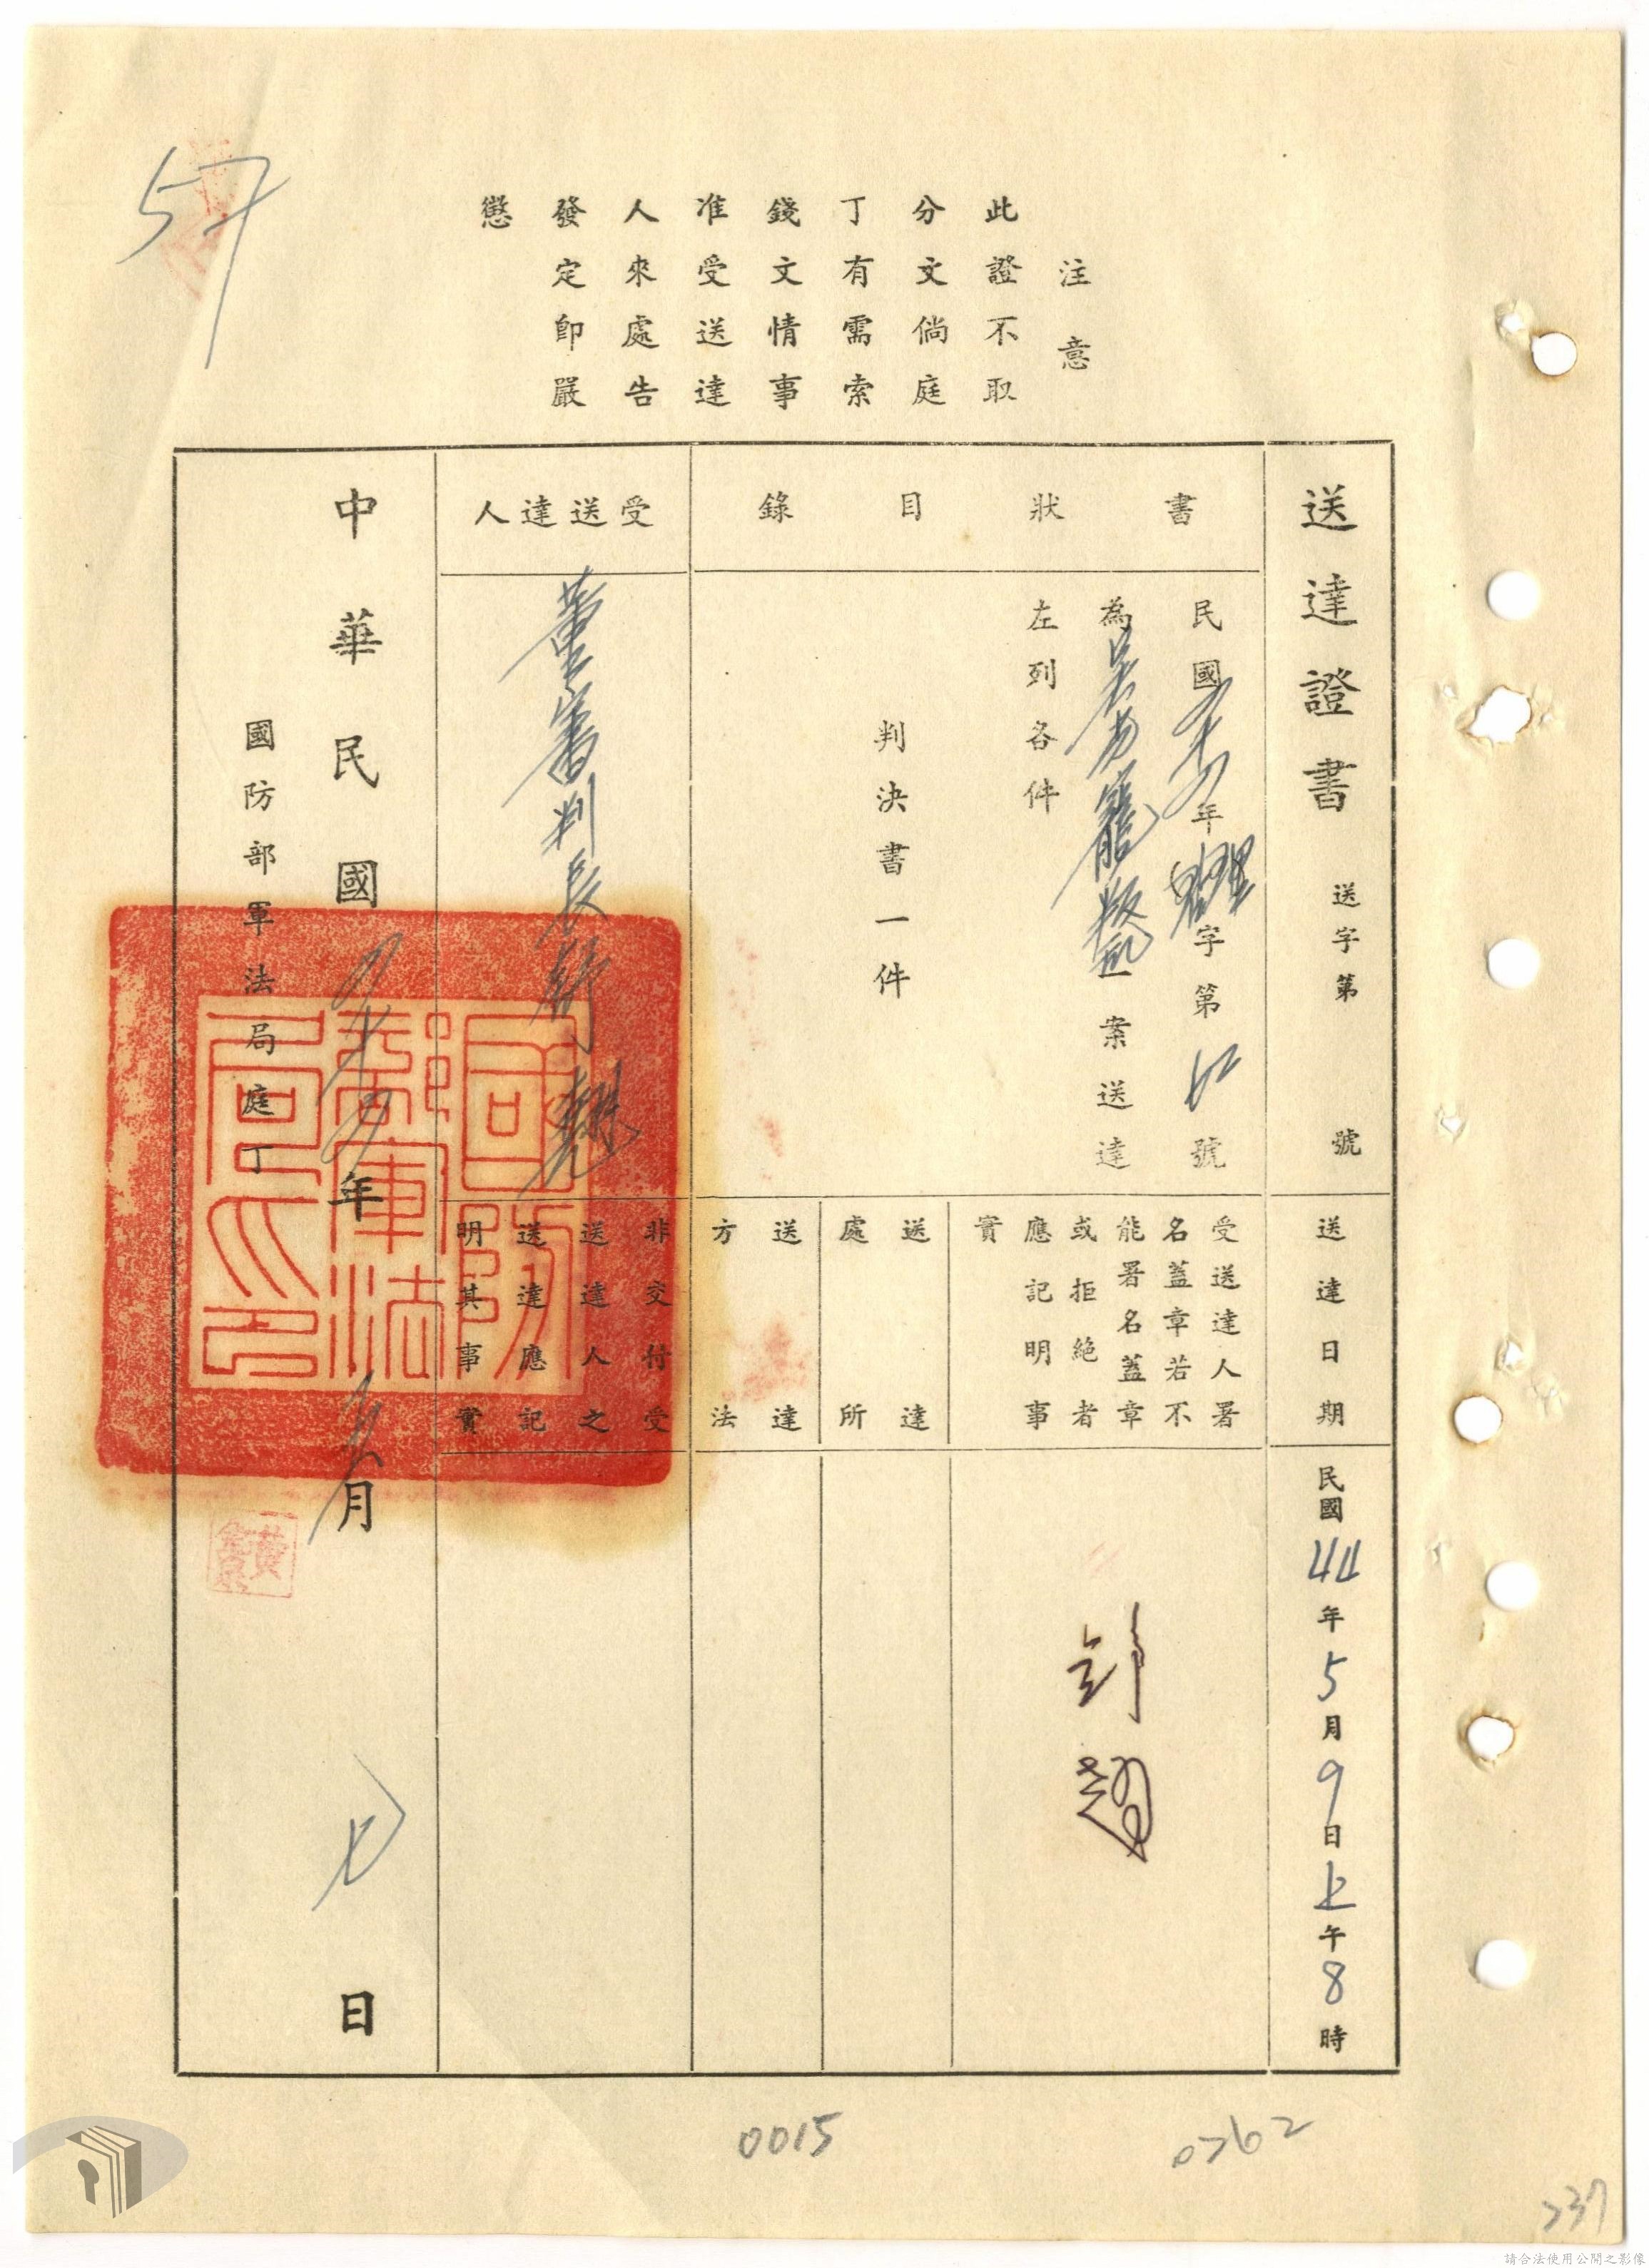 57
注意
此證不取
分文倘庭
丁有需索
錢文情事
准受送達
人來處告
發定即嚴
懲
送達證書 送字第 號
書狀目錄
民國 年 理字第 號
為吳 叛亂一案送達
左列各件
判決書一件
受送達人
審判長
送達日期
民國44年5月9日上午8時
受送達人署
名蓋章若不
能署名蓋章
或拒絕者
應記明事
實
送達
處所
送達
方法
非交付受
送達人之
送達應記
明其事實
中華民國 年 月 日
國防部軍法局庭丁
國防部軍法局印
0015
0262
237
請合法使用公開之影像